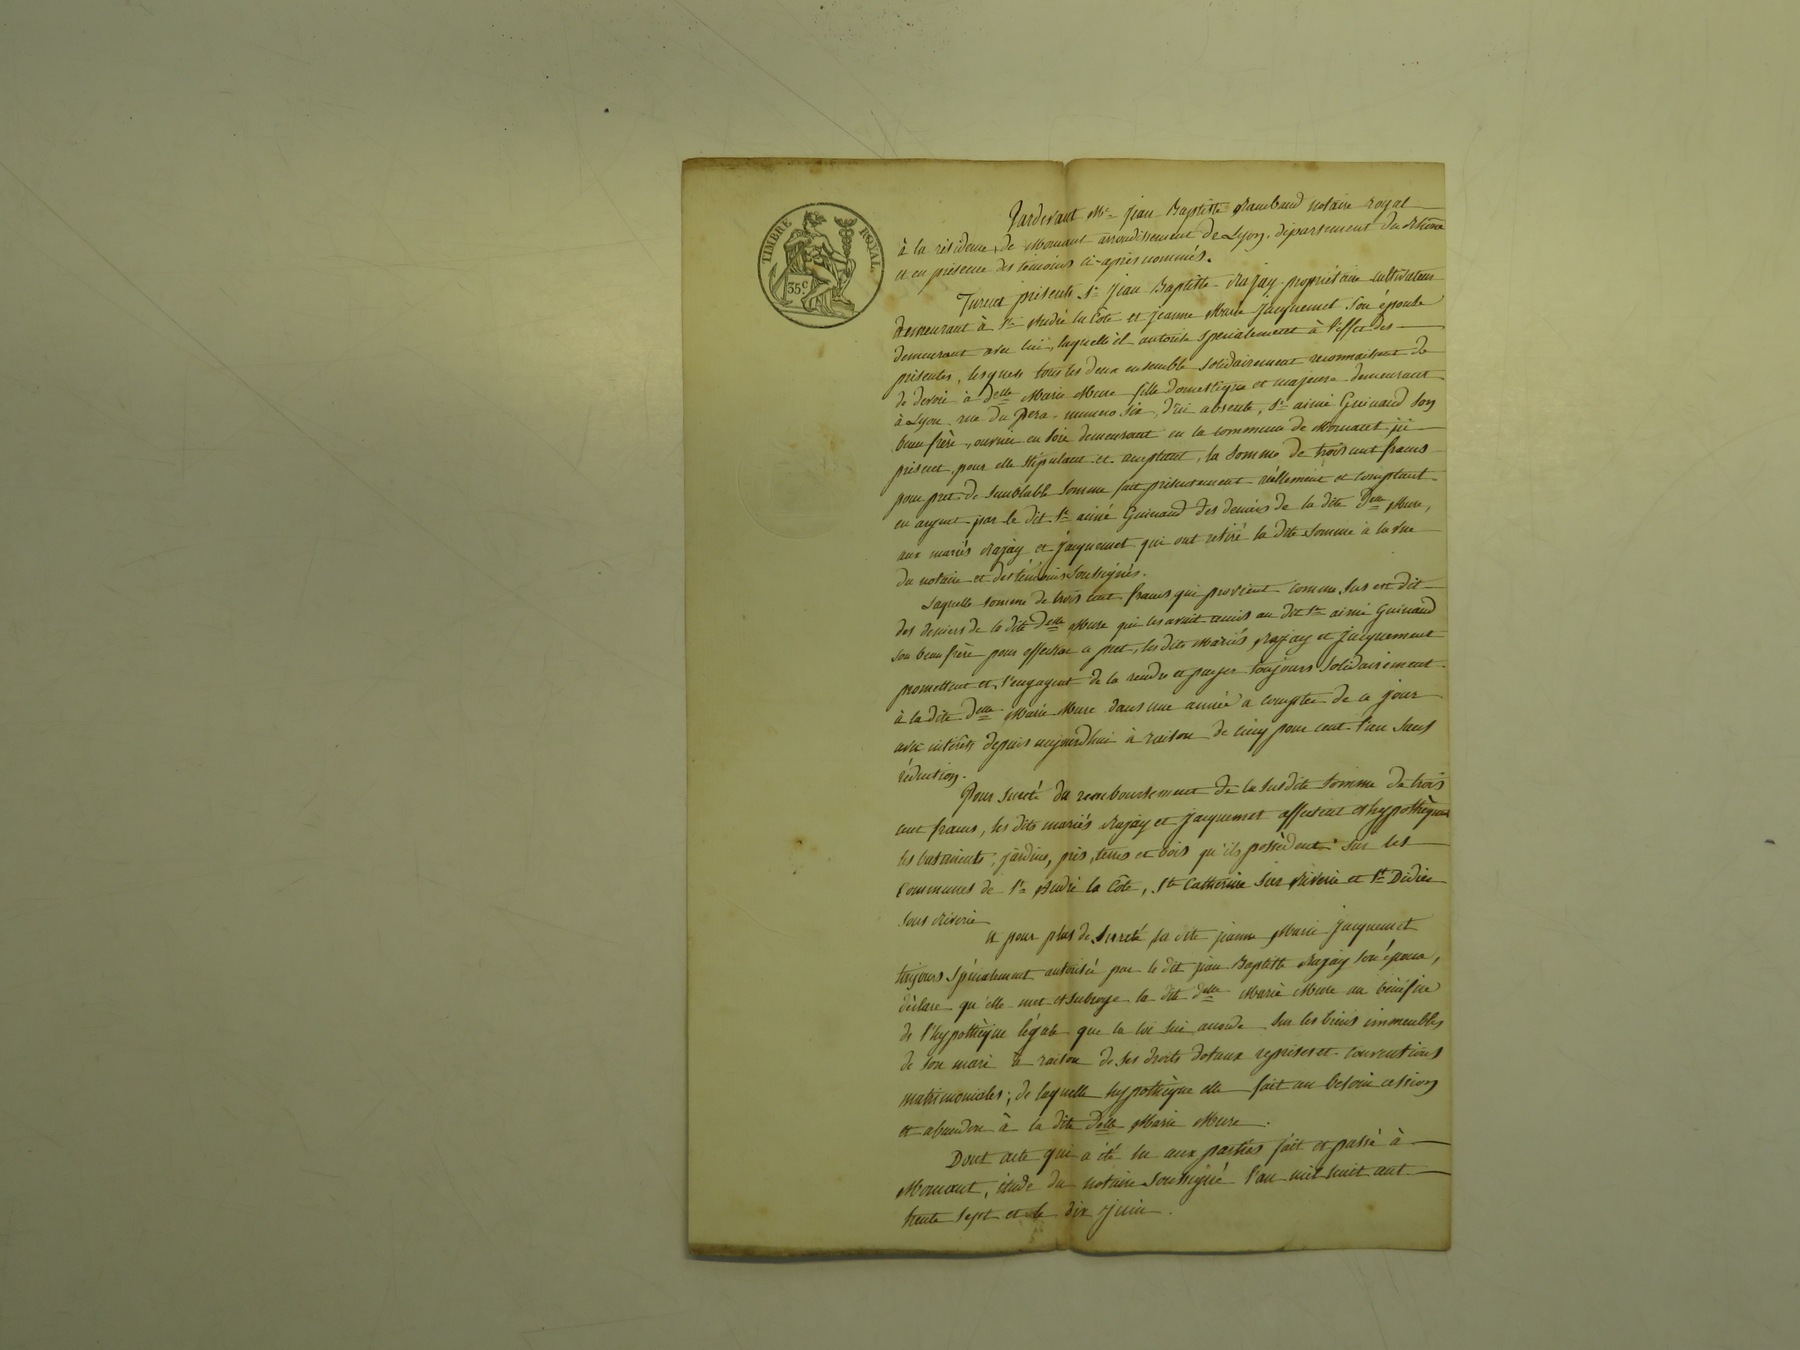 TIMBRE ROYAL.
35c
Pardevant Me Jean Baptiste Rambaud notaire royal
à la résidence de Mornant arrondissement de Lyon, département du Rhône
et en présence des témoins ci-après nommés.
Furent présents Sr Jean Baptiste propriétaire cultivateur
demeurant à St André la Côte et Jeanne Marie Jacquemet son épouse
demeurant avec lui, laquelle il autorise spécialement à l'effet des
présentes, lesquels tous les deux ensemble solidairement reconnaissent de
de devoir à delle Marie Mure fille domestique et majeure demeurant
à Lyon rue du numero six, d'ici absente, Sr aimé Guinand son
beau frère, ouvrier en soie demeurant en la commune de Mornant ici
présent, pour elle stipulant et acceptant, la somme de trois cent francs
pour pret de semblable somme fait présentement réellement et comptant
en argent par le dit Sr aimé Guinand des deniers de la dite Dlle Mure,
aux mariés et Jacquemet qui ont retiré la dite somme à la vue
du notaire et des témoins soussignés.
Laquelle somme de trois cent francs qui provient comme sus est dit
des deniers de la dite delle Mure qui les avait remis au dit Sr aimé Guinand
son beau frère pour effectuer ce pret, les dits mariés et Jacquemet
promettent et s'engagent de la rendre et payer toujours solidairement
à la dite delle Marie Mure dans une année à compter de ce jour
avec intérêts depuis aujourd'hui à raison de cinq pour cent l'an sans
réduction.
Pour sureté du remboursement de la susdite somme de trois
cent francs, les dits mariés et Jacquemet affectent et hypothèquent
les batiments, jardins, prés, terres et bois qu'ils possèdent sur les
communes de St André la Côte, Ste Catherine sur Riverie et St Didier
sous Riverie
et pour plus de sureté la dite Jeanne Marie Jacquemet
toujours spécialement autorisée par le dit Jean Baptiste son époux,
déclare qu'elle met et subroge la dite delle Marie Mure au bénéfice
de l'hypothèque légale que la loi lui accorde sur les biens immeubles
de son mari à raison de ses droits dotaux reprises et conventions
matrimoniales; de laquelle hypothèque elle fait au besoin cession
et abandon à la dite delle Marie Mure.
Dont acte qui a été lu aux parties fait et passé à
Mornant, étude du notaire soussigné l'an mil huit cent
trente sept et le dix juin.